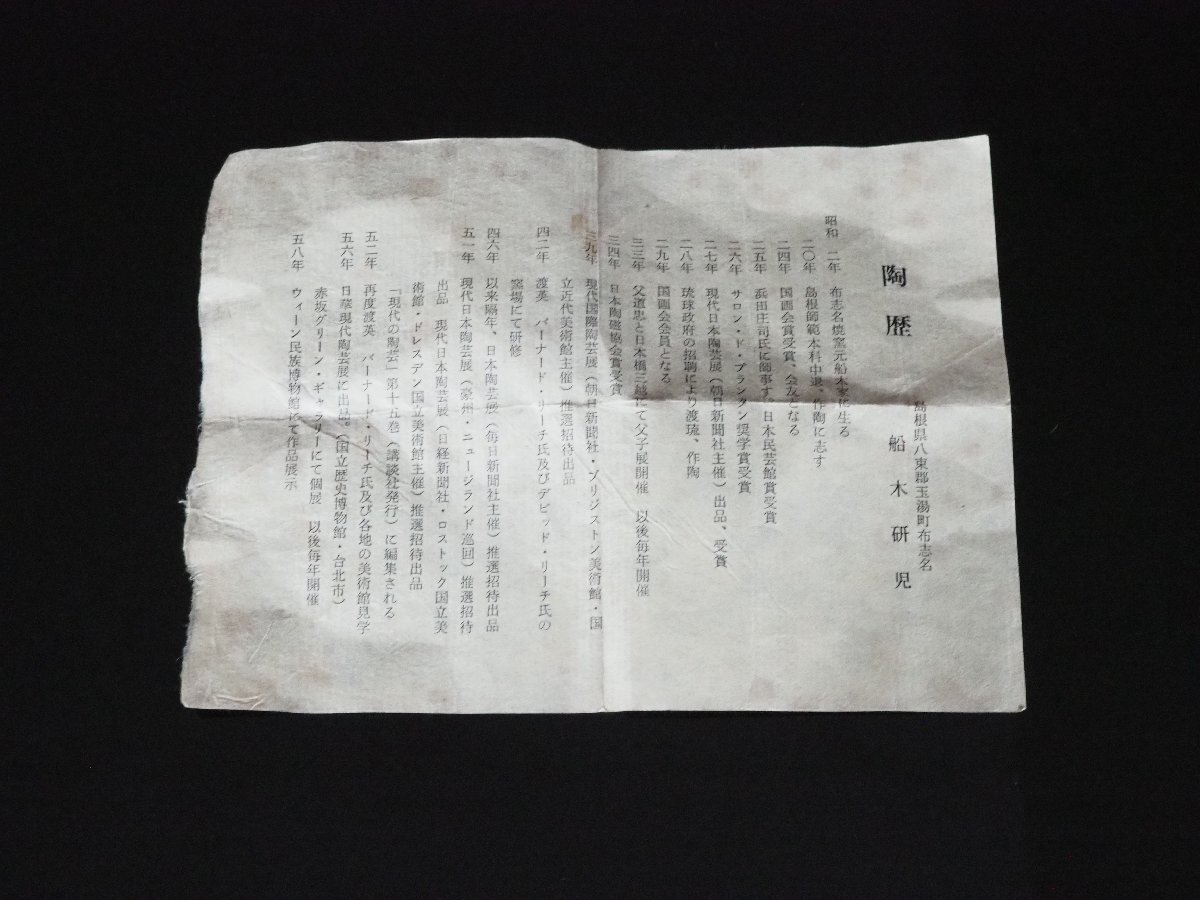 陶歴
島根県八束郡玉湯町布志名
船木研児
昭和 二年 布志名焼窯元船木家に生る
二〇年 島根師範本科中退、作陶に志す
二四年 国画会賞受賞、会友となる
二五年 浜田庄司氏に師事す。日本民芸館賞受賞
二六年 サロン・ド・プランタン奨学賞受賞
二七年 現代日本陶芸展(朝日新聞社主催)出品、受賞
二八年 琉球政府の招聘により渡琉、作陶
二九年 国画会会員となる
三三年 父道忠と日本橋三越にて父子展開催 以後毎年開催
三四年 日本陶磁協会賞受賞
三九年 現代国際陶芸展(朝日新聞社・ブリジストン美術館・国
立近代美術館主催)推選招待出品
四二年 渡英 バーナード・リーチ氏及びデビッド・リーチ氏の
窯場にて研修
四六年 以来隔年、日本陶芸展(毎日新聞社主催)推選招待出品
五一年 現代日本陶芸展(豪州・ニュージランド巡回)推選招待
出品 現代日本陶芸展(日経新聞社・ロストック国立美
術館・ドレスデン国立美術館主催)推選招待出品
「現代の陶芸」第十五巻(講談社発行)に編集される
五二年 再度渡英 バーナード・リーチ氏及び各地の美術館見学
五六年 日華現代陶芸展に出品。(国立歴史博物館・台北市)
赤坂グリーン・ギャラリーにて個展 以後毎年開催
五八年 ウィーン民族博物館にて作品展示